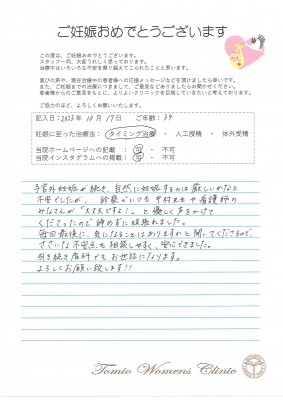 ご妊娠おめでとうございます
この度は、ご妊娠おめでとうございます。
スタッフ一同、大変うれしく思っております。
治療中はいろいろな不安を乗り越えてこられたことと思います。
喜びの声や、現在治療中の患者様への応援メッセージなどを頂けましたら幸いです。
また、ご妊娠までの治療につきまして、ご意見などありましたらお聞かせください。
患者様からのご意見をもとに、よりよいクリニックを目指していきたいと考えております。
ご協力のほど、よろしくお願いいたします。
記入日:2023年 10月 17日 ご年齢:34
妊娠に至った治療法:タイミング治療・人工授精・体外受精
当院ホームページへの記載:可・不可
当院インスタグラムへの掲載:可・不可
子宮外妊娠が続き、自然に妊娠するのは厳しいかなと
不安でしたが、診察でいつも中村先生や看護師の
みなさんが「大丈夫ですよ!」と優しく声をかけて
くださったので諦めずに頑張れました。
毎回最後に、気になることはありますかと聞いてくださるので、
ささいな不安点も相談しやすく、安心できました。
引き続き産科でもお世話になります。
よろしくお願い致します!!
Tomio Womens Clinic